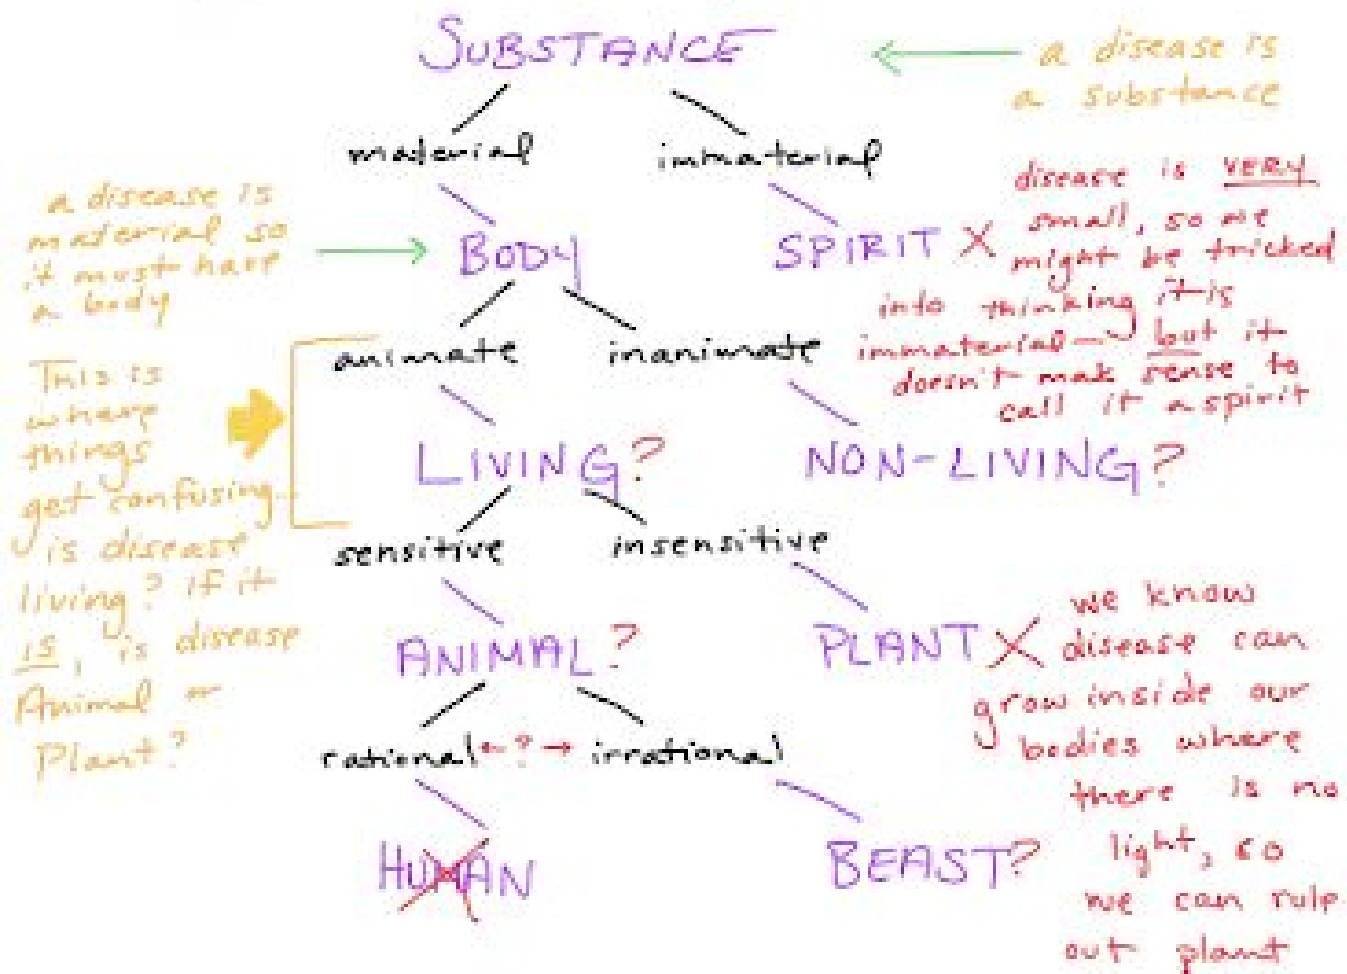 SUBSTANCE
a disease is
a substance
material
immaterial
a disease is
material so
it must have
a body
BODY
SPIRIT X
disease is VERY
small, so we
might be tricked
into thinking it is
immaterial — but it
doesn't make sense to
call it a spirit
animate
inanimate
This is
where
things
get confusing...
is disease
living? if it
is, is disease
Animal or
Plant?
LIVING?
NON-LIVING?
sensitive
insensitive
ANIMAL?
PLANT X
we know
disease can
grow inside our
bodies where
there is no
light, so
we can rule
out plant
rational ← ? → irrational
HUMAN
BEAST?